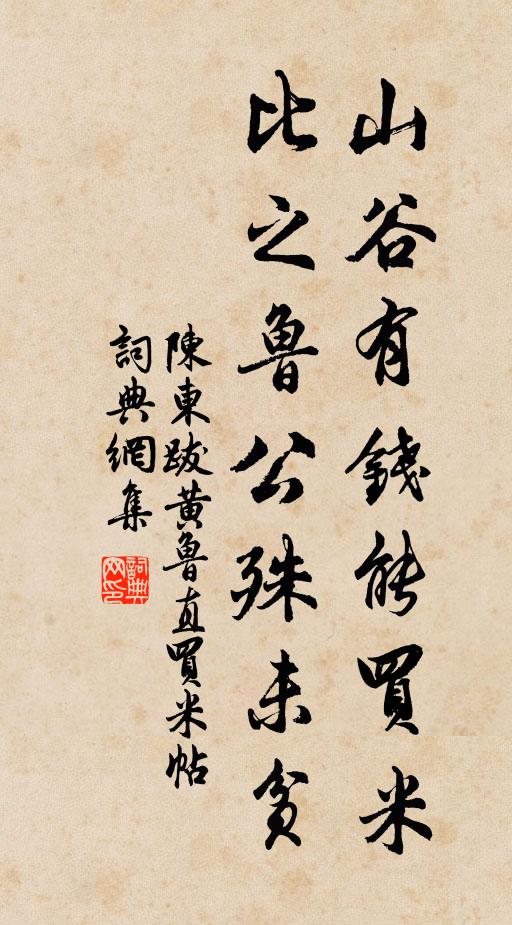 山谷有錢能買米
比之魯公殊未貧
陳東跋黃魯直買米帖
詞典網集
詞典网印